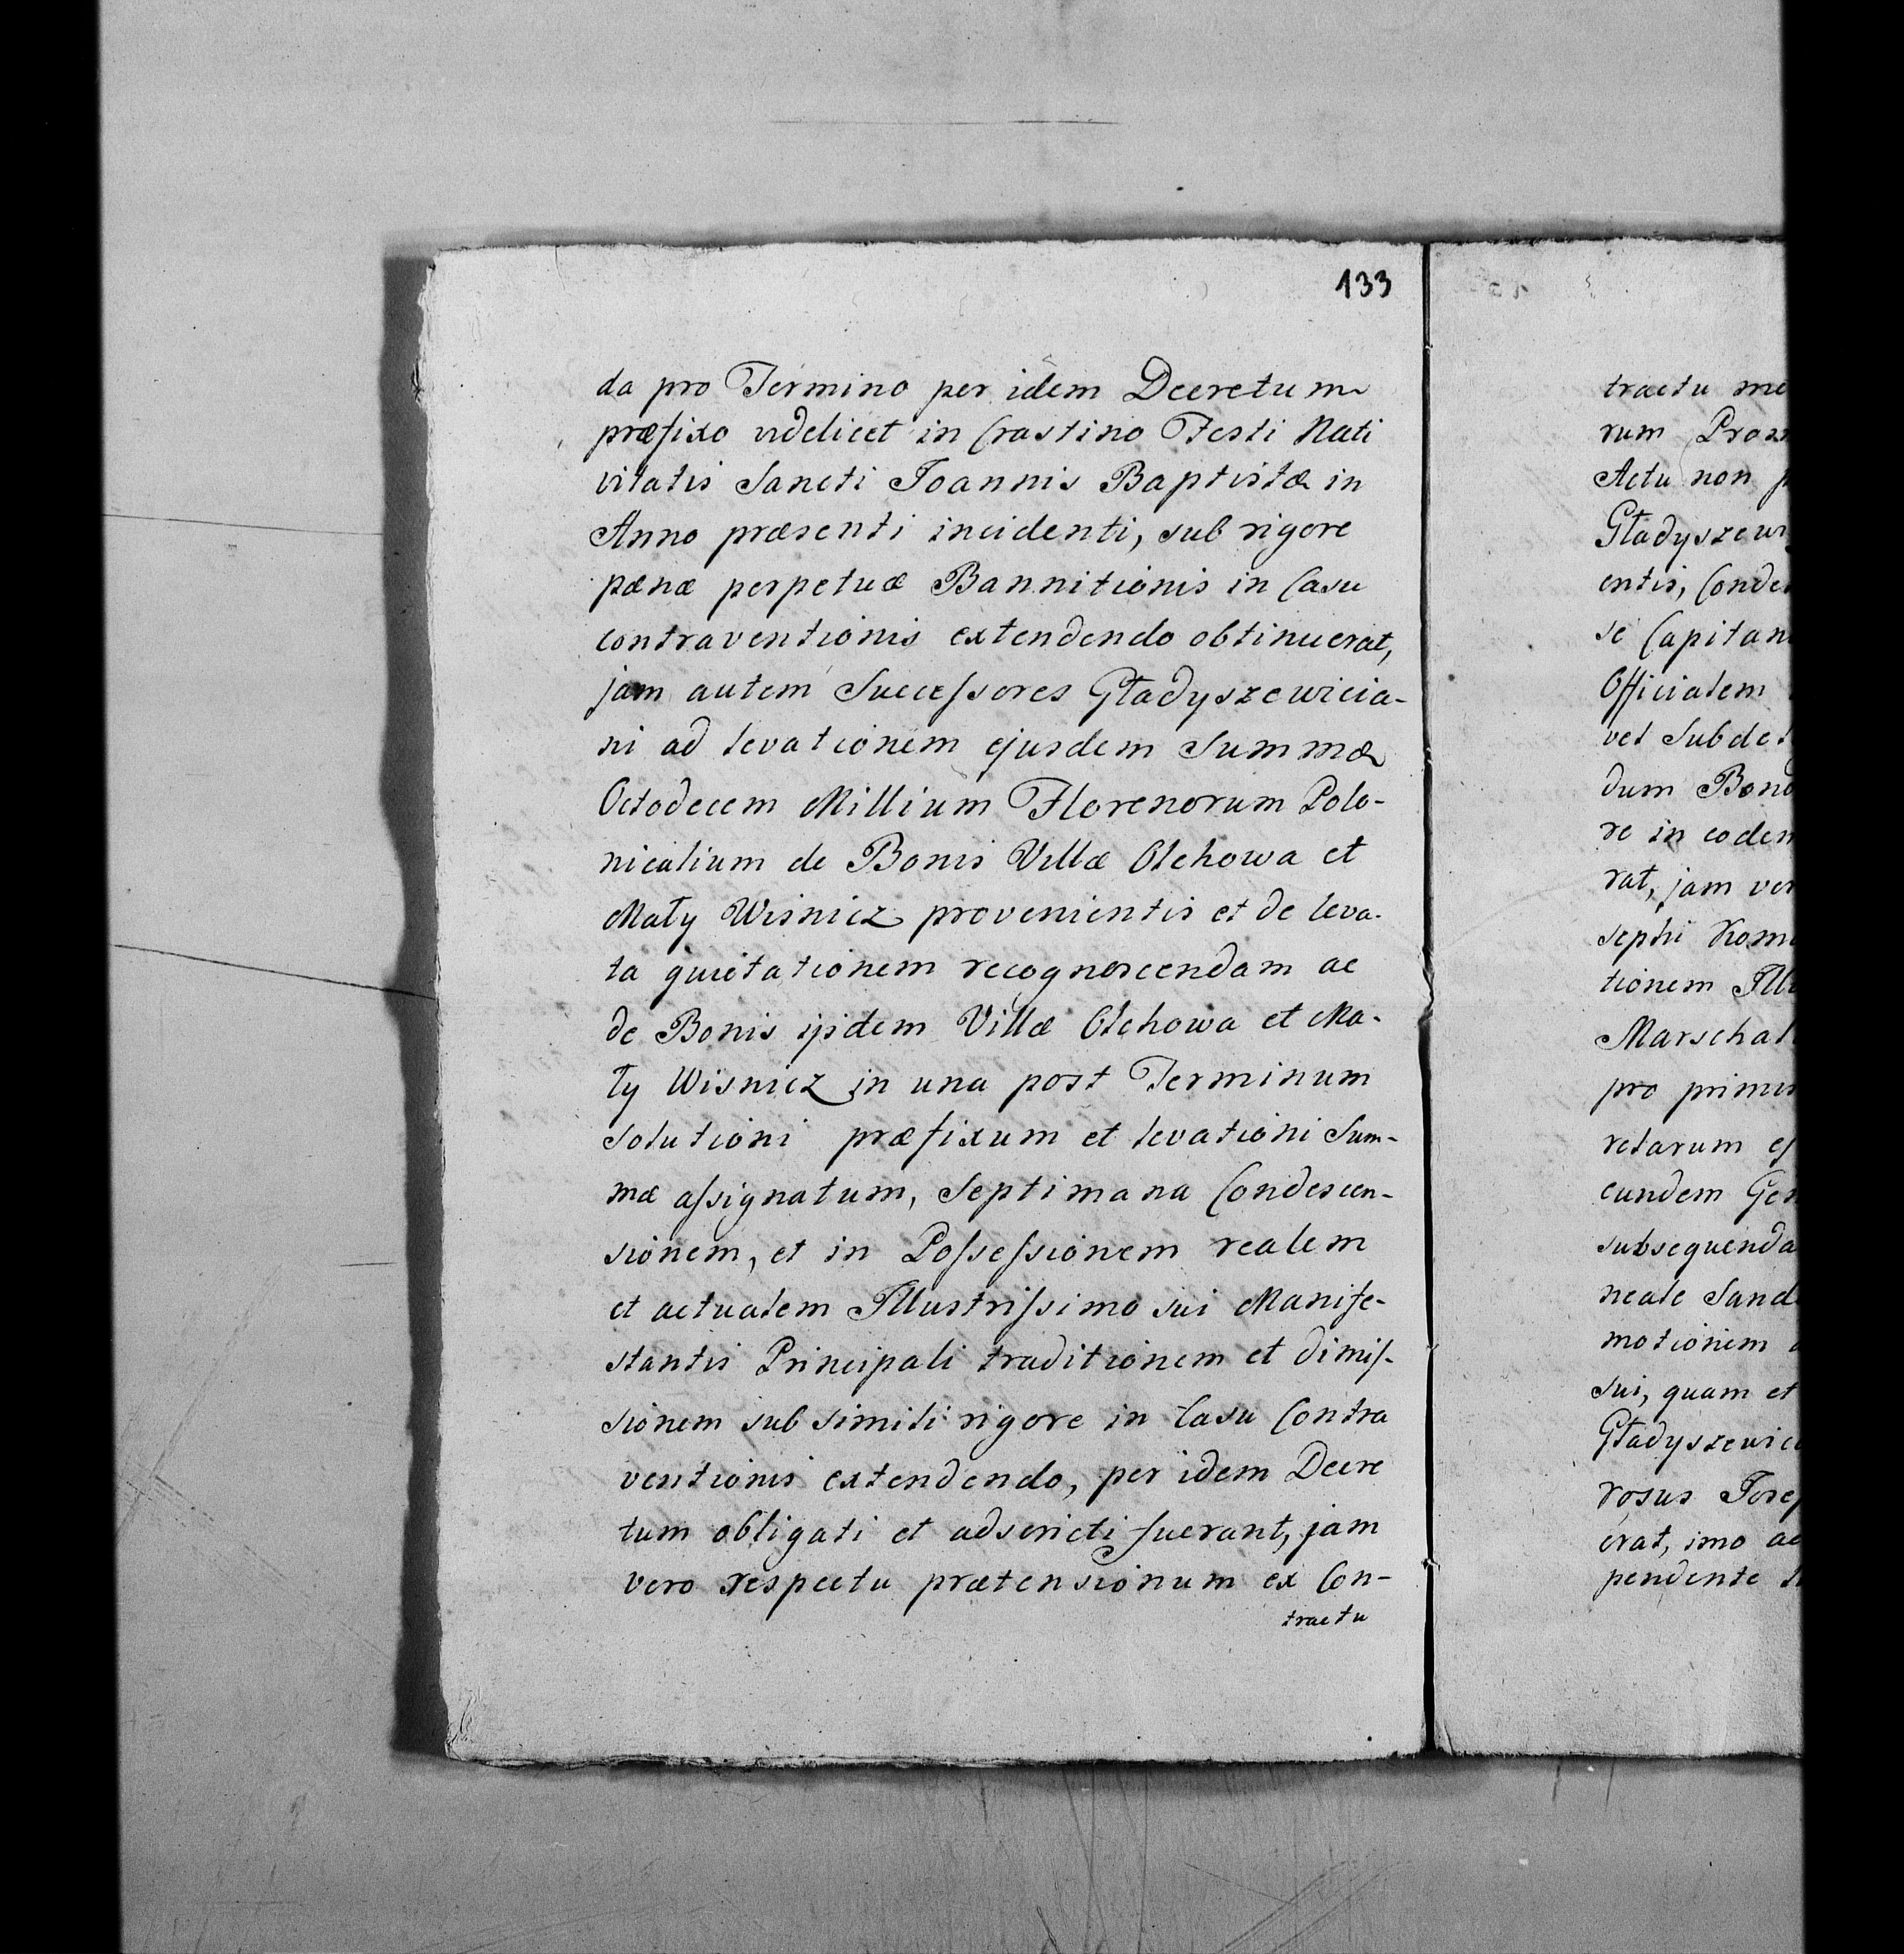 133
da pro Termino per idem Decretum
præfixo videlicet in Crastino Festi Nati
vitatis Sancti Joannis Baptistæ in
Anno præsenti incidenti, sub rigore
pænæ perpetuæ Bannitionis in Casu
contraventionis extendendo obtinuerat,
jam autem Succeſsores Gładyszewicia-
ni ad levationem ejusdem Summæ
Octodecem Millium Florenorum Polo-
nicalium de Bonis Villæ Olchowa et
Mały Wisnicz provenientis et de leva-
ta quietationem recognoscendam ac
de Bonis ijsdem Villæ Olchowa et Ma-
ły Wisnicz in una post Terminum
solutioni præfixum et levationi Sum-
mæ aſsignatum, Septimana Condescen-
sionem, et in Poſseſsionem realem
et actualem Illustriſsimo sui Manife-
stantis Principali traditionem et dimiſ-
sionem sub simili rigore in Casu Contra
ventionis extendendo, per idem Decre
tum obligati et adscricti fuerant, jam
vero respectu prætensionum ex Con-
tractu
tractu
rum
Actu non
Gładyszewi
entis, Conde
se Capitan
Officialem
vel Subde
dum Bono
re in eodem
rat, jam ver
sephi Rom
tionem Illu
Marschal
pro primis
retarum
eundem Gen
subsequenda
neale Sand
motionem
sui, quam et
Gładyszewic
rosus Josep
erat, imo ac
pendente